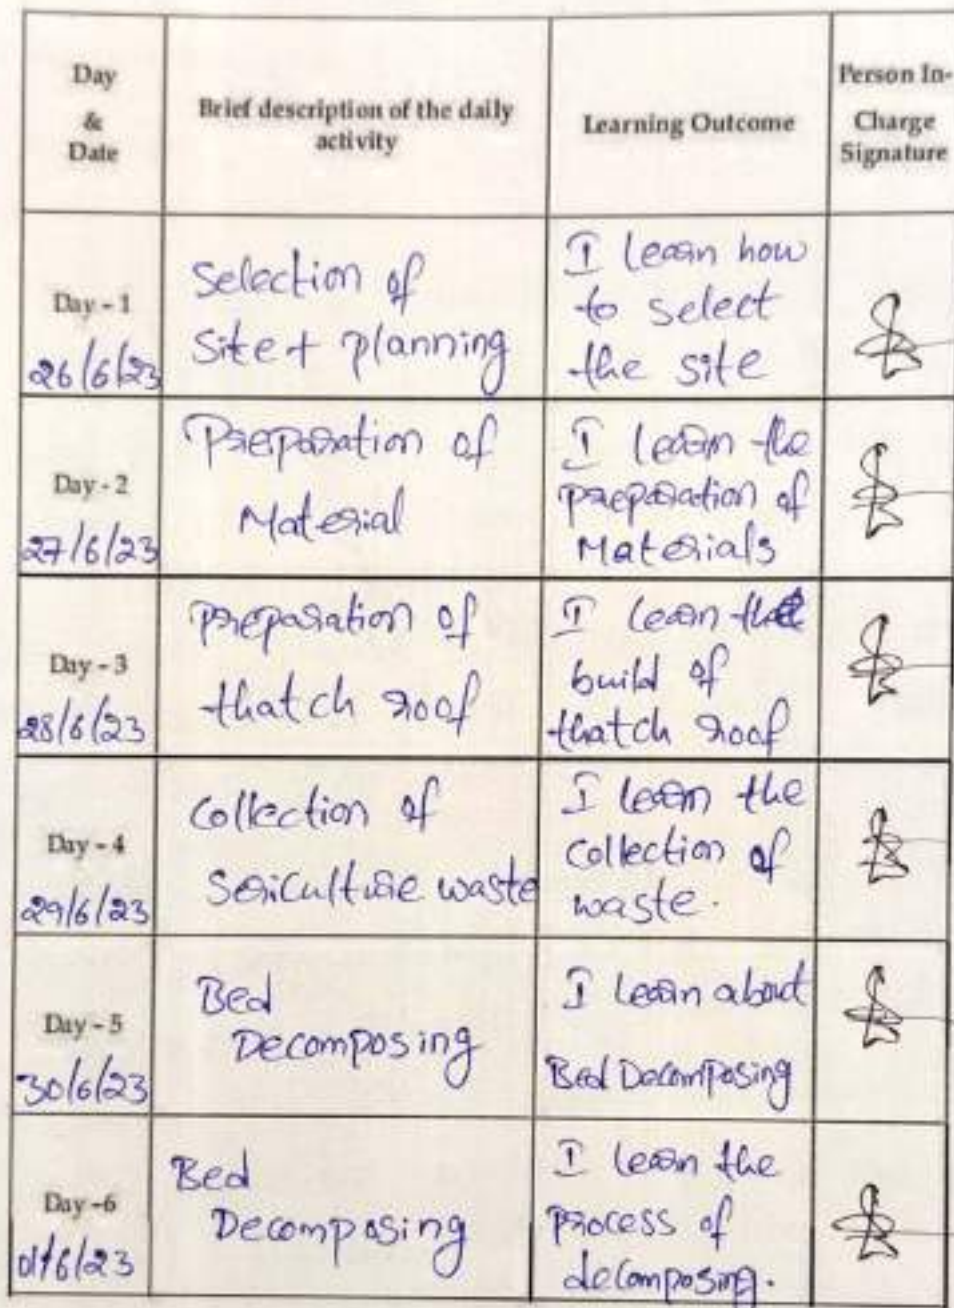 Day
&
Date
Brief description of the daily
activity
Learning Outcome
Person In-
Charge
Signature
Day - 1
26/6/23
Selection of
Site + planning
I learn how
to select
the site
Day - 2
27/6/23
Preparation of
Material
I learn the
preparation of
Materials
Day - 3
28/6/23
preparation of
thatch roof
I learn the
build of
thatch roof
Day - 4
29/6/23
Collection of
Sericulture waste
I learn the
collection of
waste.
Day - 5
30/6/23
Bed
Decomposing
I learn about
Bed Decomposing
Day -6
01/6/23
Bed
Decomposing
I learn the
process of
decomposing.